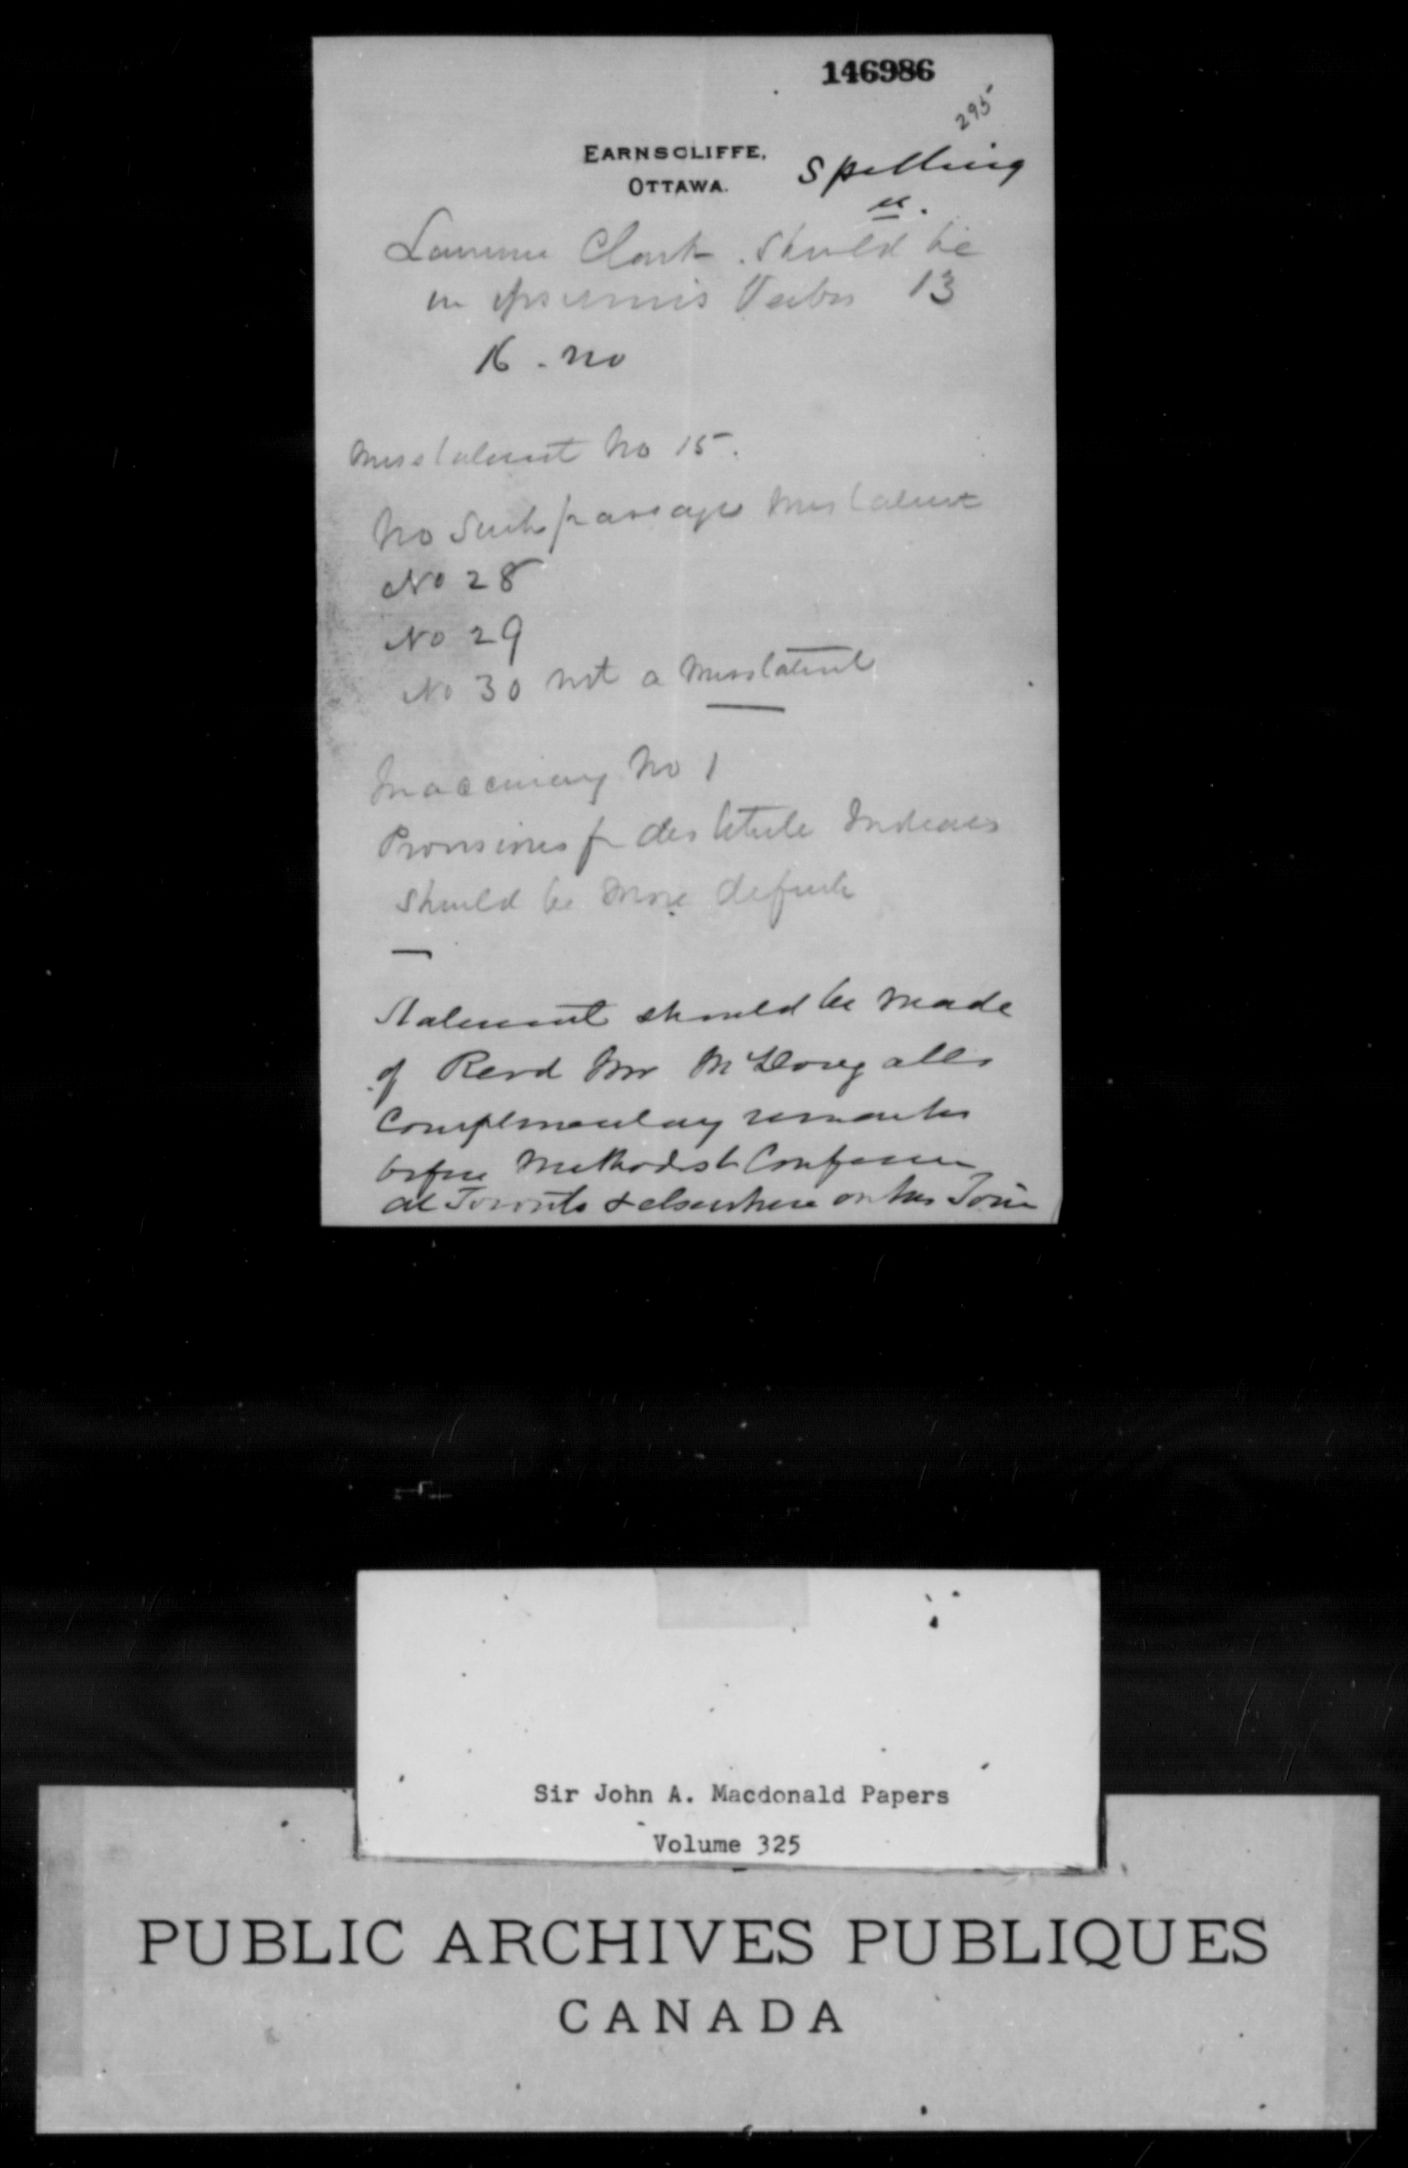 146986
295
EARNSCLIFFE,
OTTAWA.
Spelling
Lawrence Clark. Should be
in ipsissimis Verbis 13
16 - no
Misstatement No 15.
No Such passage Misstatement
No 28
No 29
No 30 not a Misstatement
Inaccuracy No 1
Provisions for destitute Indians
should be more definite
Statement should be made
of Revd Mr McDougalls
Complimentary remarks
before Methodist Conference
at Toronto & elsewhere on his Tour
Sir John A. Macdonald Papers
Volume 325
PUBLIC ARCHIVES PUBLIQUES
CANADA